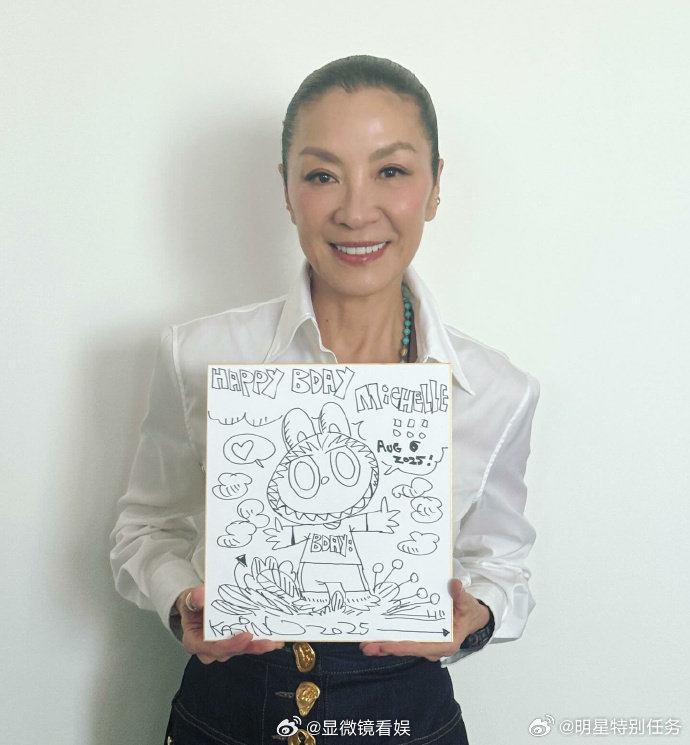 HAPPY BDAY
MiCHELLE
!!!
AUG 6
2025!
BDAY!
KASING 2025
@显微镜看娱
@明星特别任务